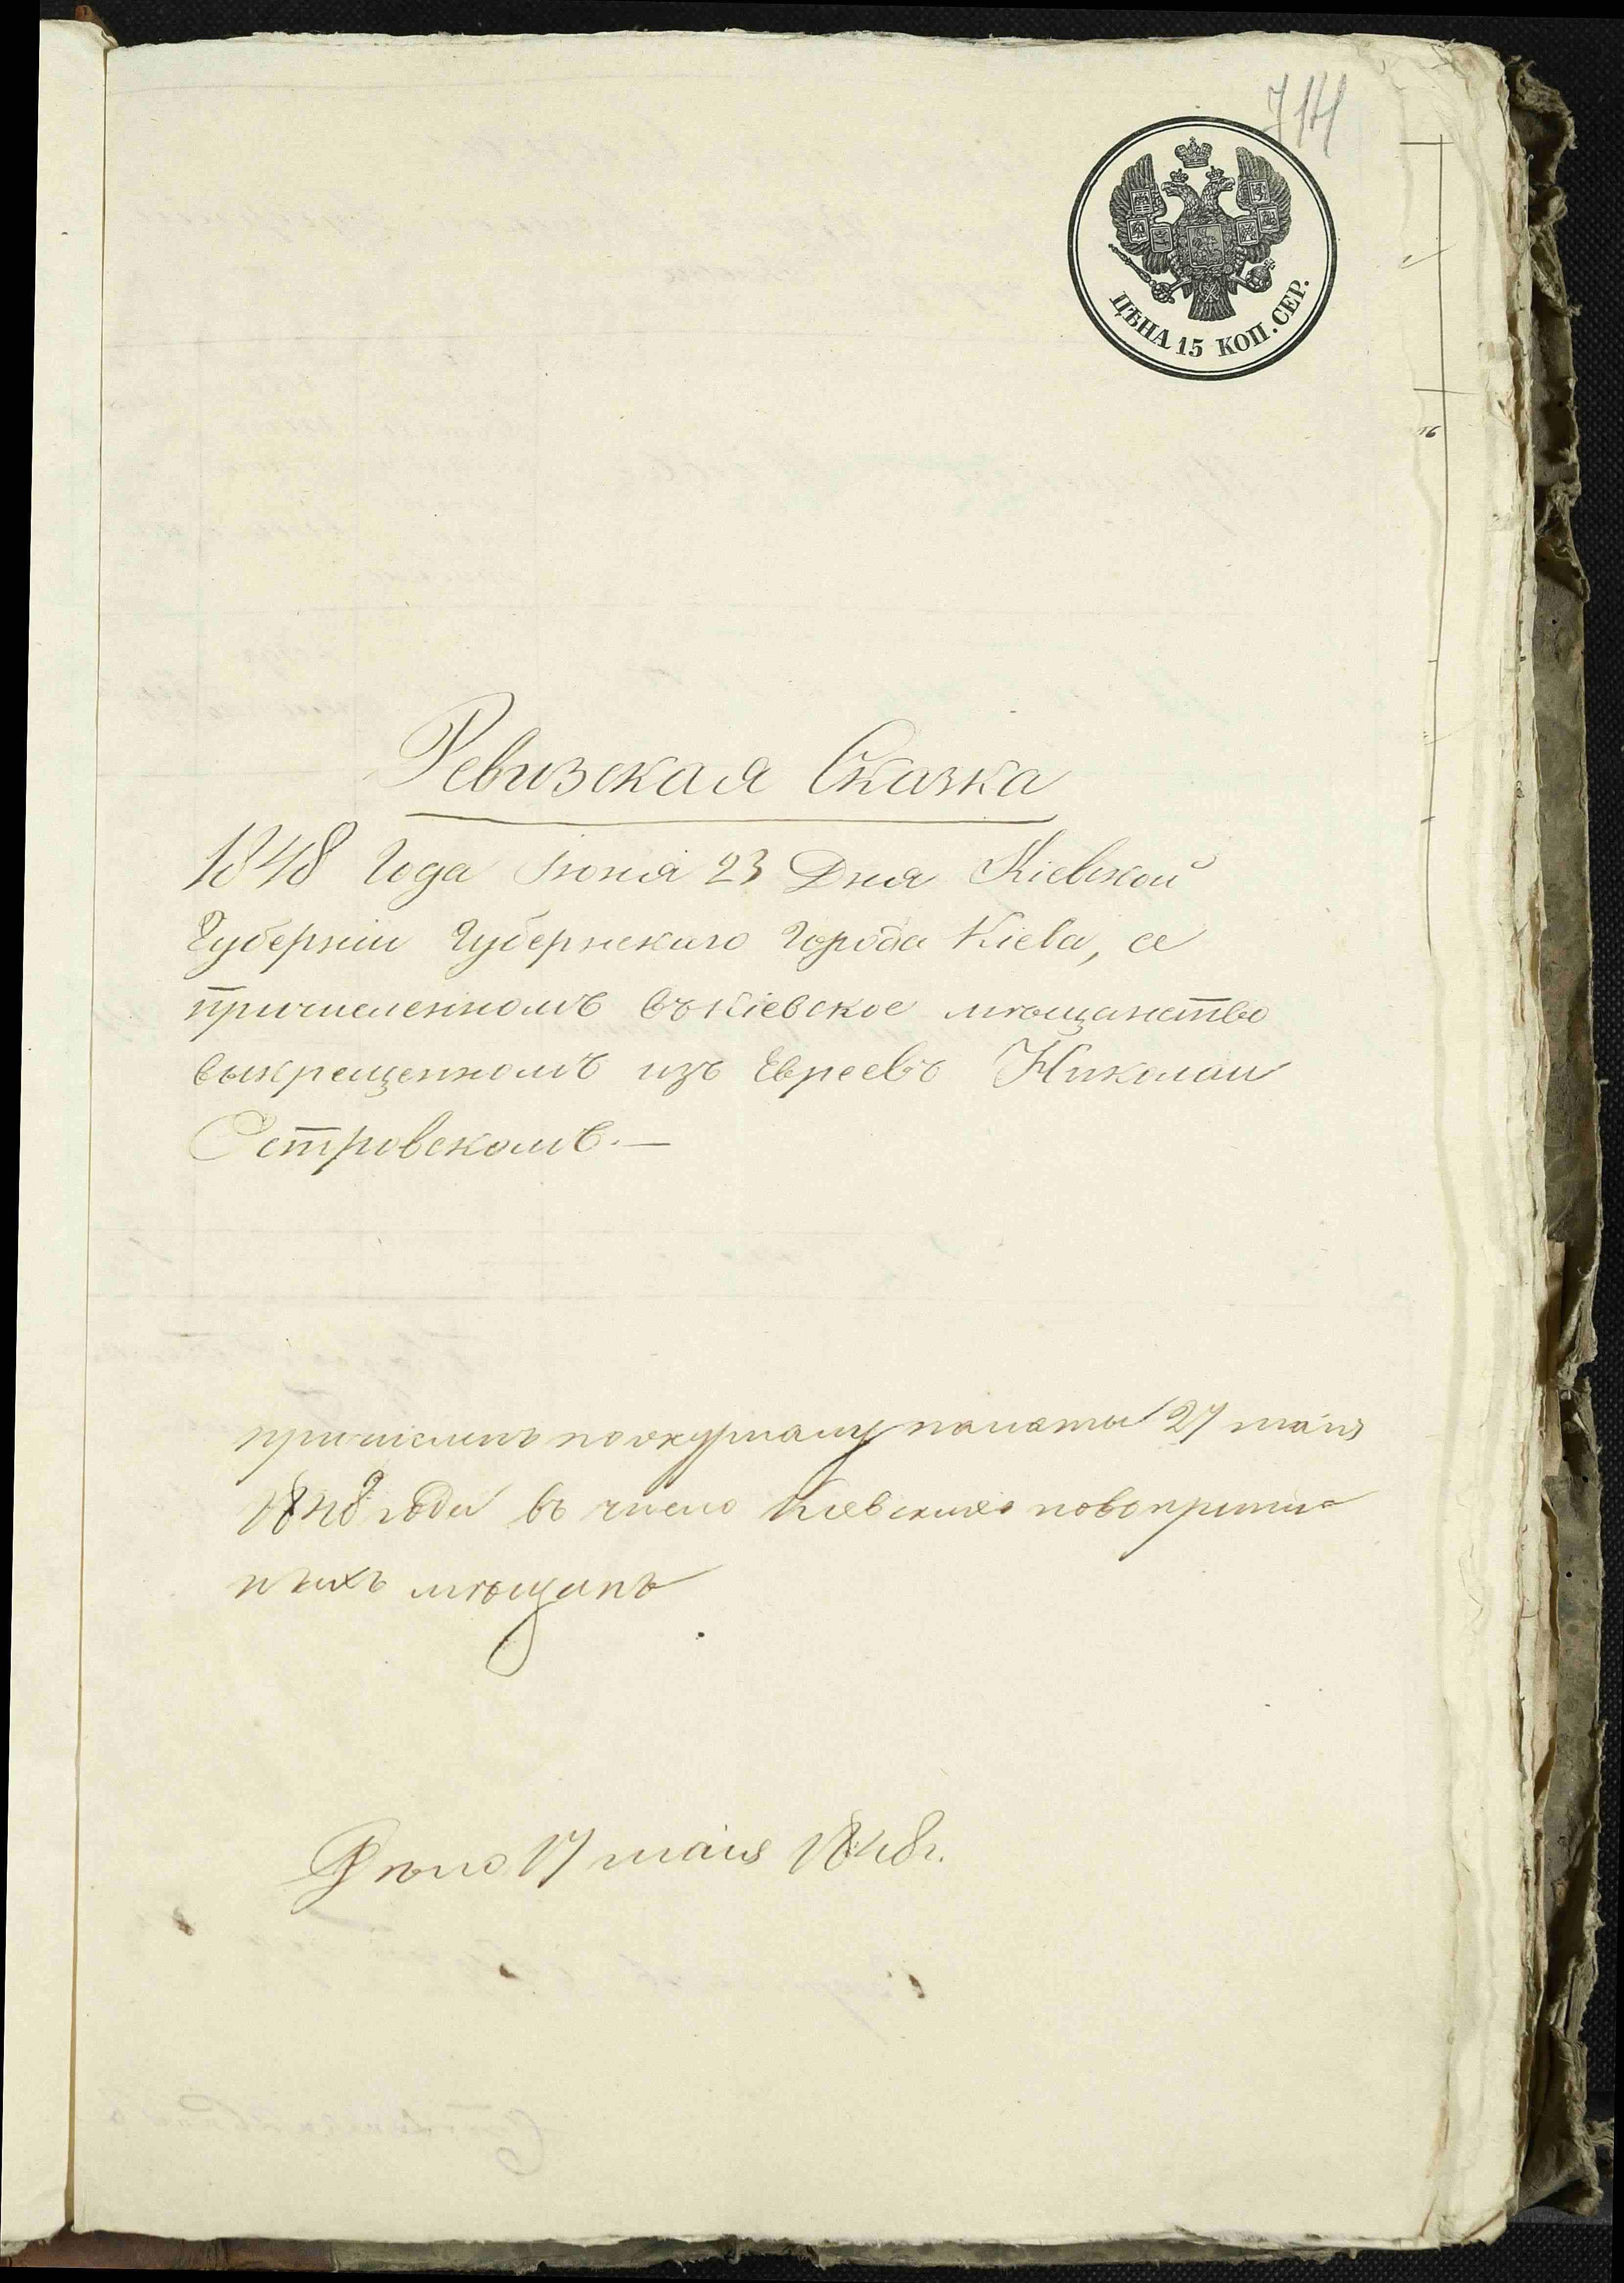 714
ЦѢНА 15 КОП. СЕР.
Ревизская Сказка
1848 Года Іюня 23 Дня Кіевской
Губерніи Губернскаго Города Кіева, о
причисленномъ въ Кіевское мѣщанство
выкрещенномъ изъ Евреевъ Николаи
Островскомъ.—
причисленъ по журналу палаты 27 маія
1848 года въ число Кіевскихъ новоприпис
ныхъ мѣщанъ
Дѣло 17 маія 1848 г.